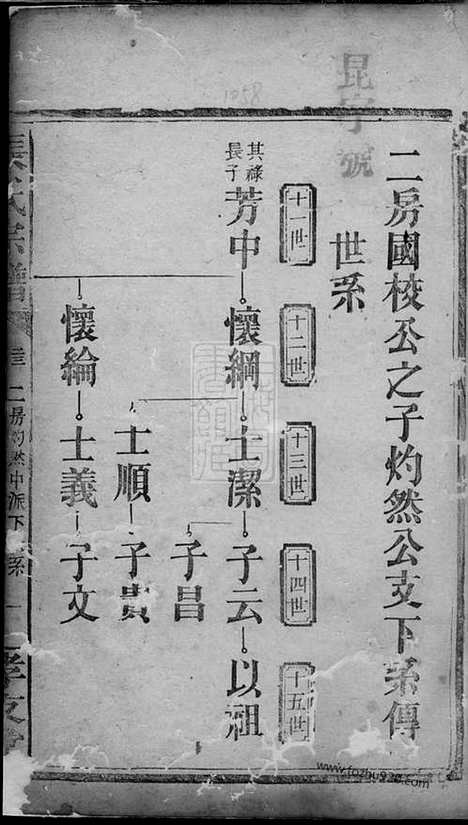 昆字號
1058
二房國校公之子灼然公支下系傳
世系
十一世
十二世
十三世
十四世
十五世
其祿
長子
芳中 懷綱 士潔 子云 以祖
子昌
士順 子貴
懷綸 士義 子文
二房灼然中派下
系一
www.fozhu920.com